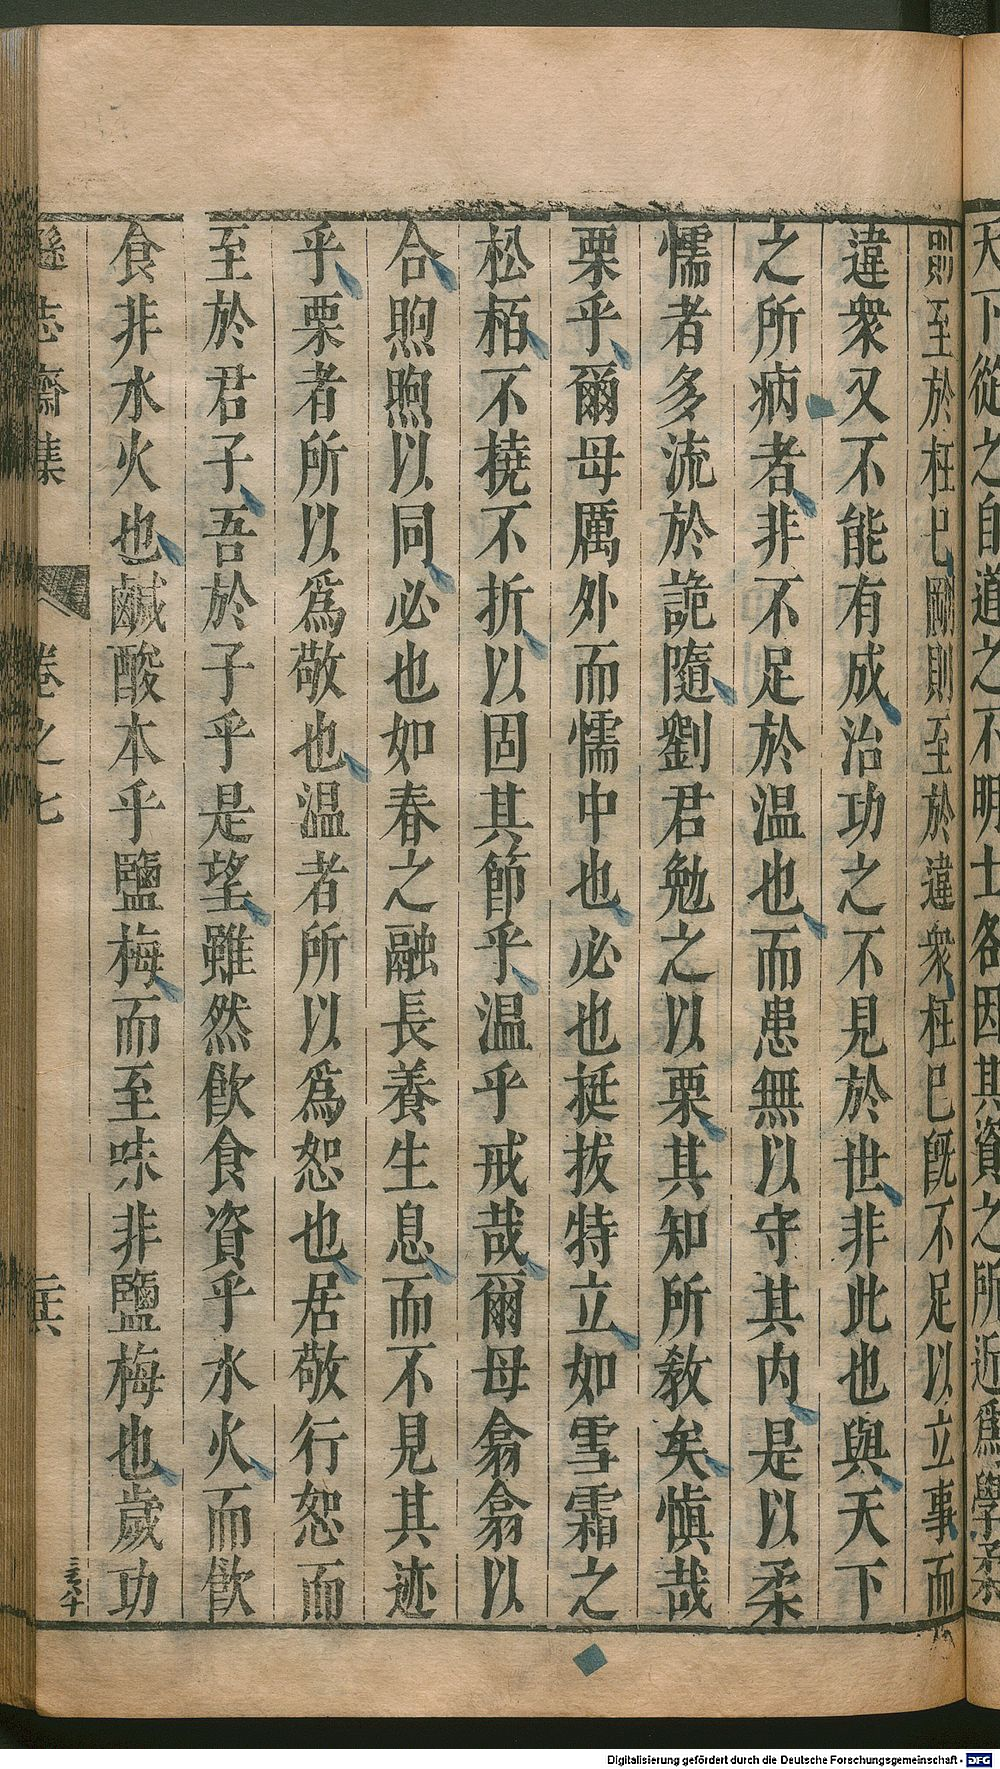 天下從之自道之不明士各因其資之所近爲學柔
則至於枉已剛則至於違衆枉已旣不足以立事而
違衆又不能有成治功之不見於世非此也與天下
之所病者非不足於温也而患無以守其内是以柔
懦者多流於詭隨劉君勉之以栗其知所敎矣愼哉
栗乎爾母厲外而懦中也必也挺拔特立如雪霜之
松栢不撓不折以固其節乎温乎戒哉爾母翕翕以
合煦煦以同必也如春之融長養生息而不見其迹
乎栗者所以爲敬也温者所以爲恕也居敬行恕而
至於君子吾於子乎是望雖然飮食資乎水火而飮
食非水火也鹹酸本乎鹽梅而至味非鹽梅也歲功
遜志齋集 卷之七
Digitalisierung gefördert durch die Deutsche Forschungsgemeinschaft - DFG